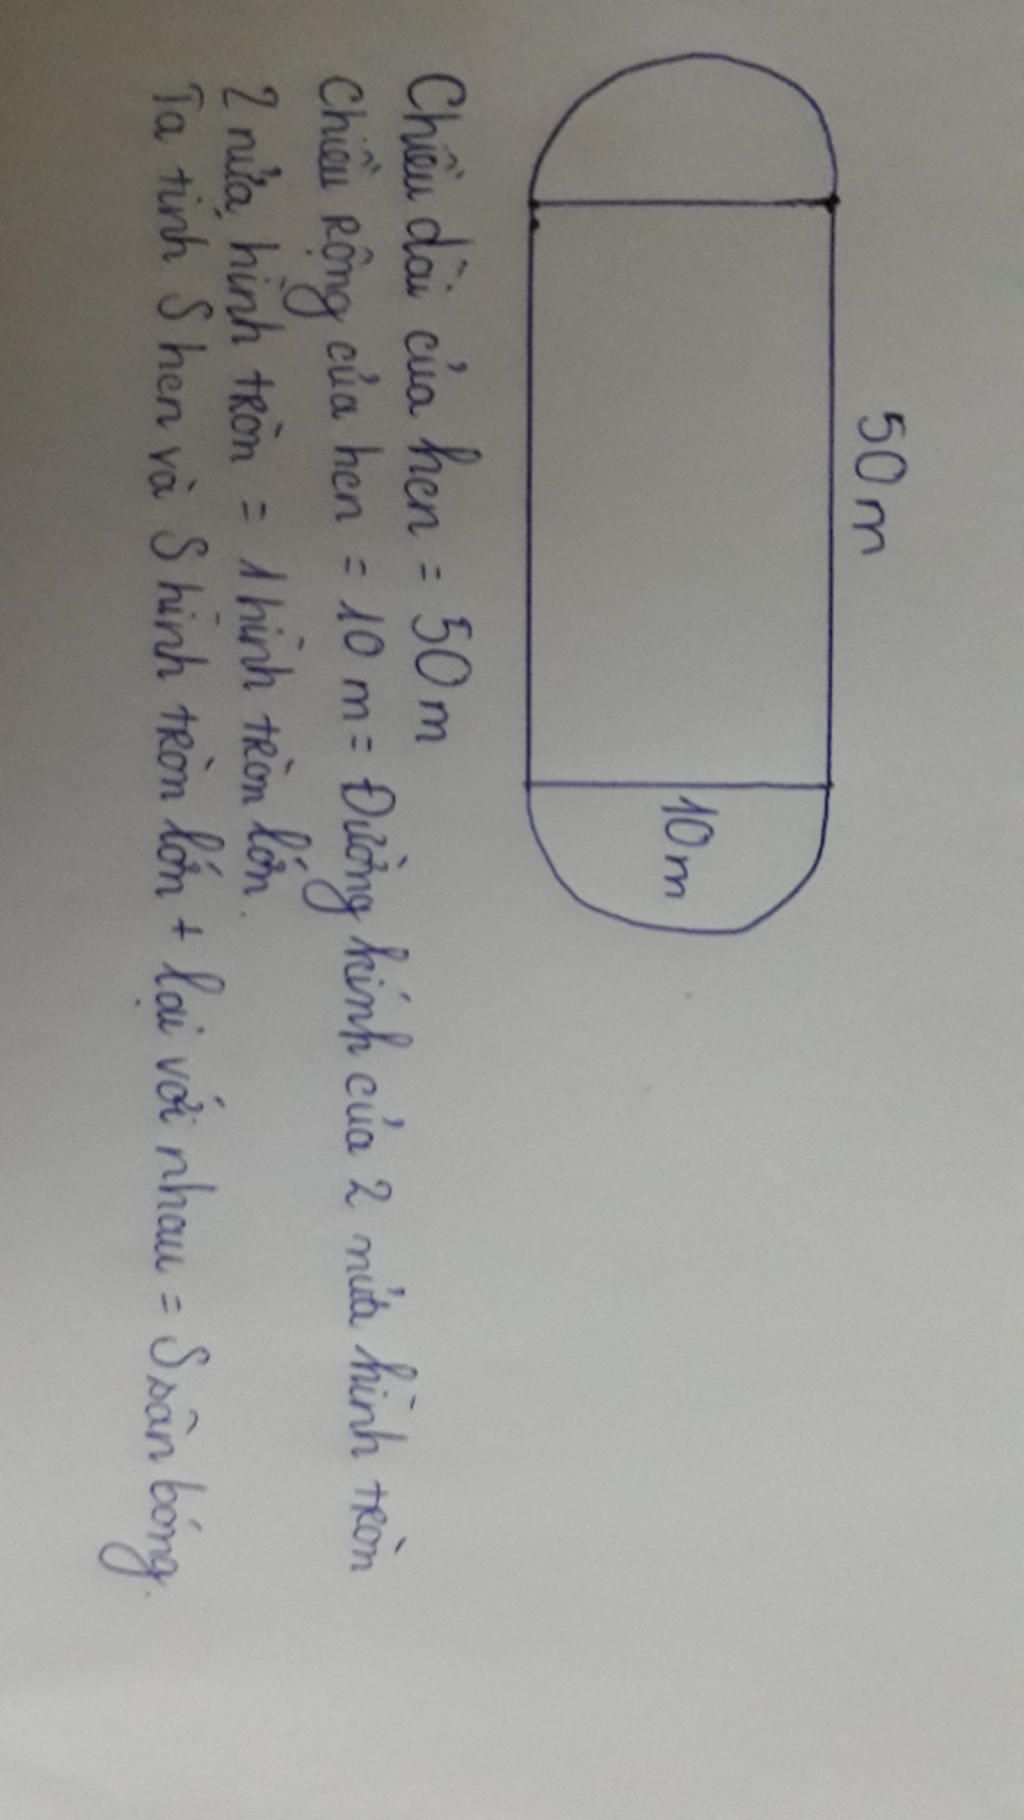 50m
10m
Chiều dài của hcn = 50m
Chiều rộng của hcn = 10 m = Đường kính của 2 nửa hình tròn
2 nửa hình tròn = 1 hình tròn lớn.
Ta tính S hcn và S hình tròn lớn + lại với nhau = S sân bóng.